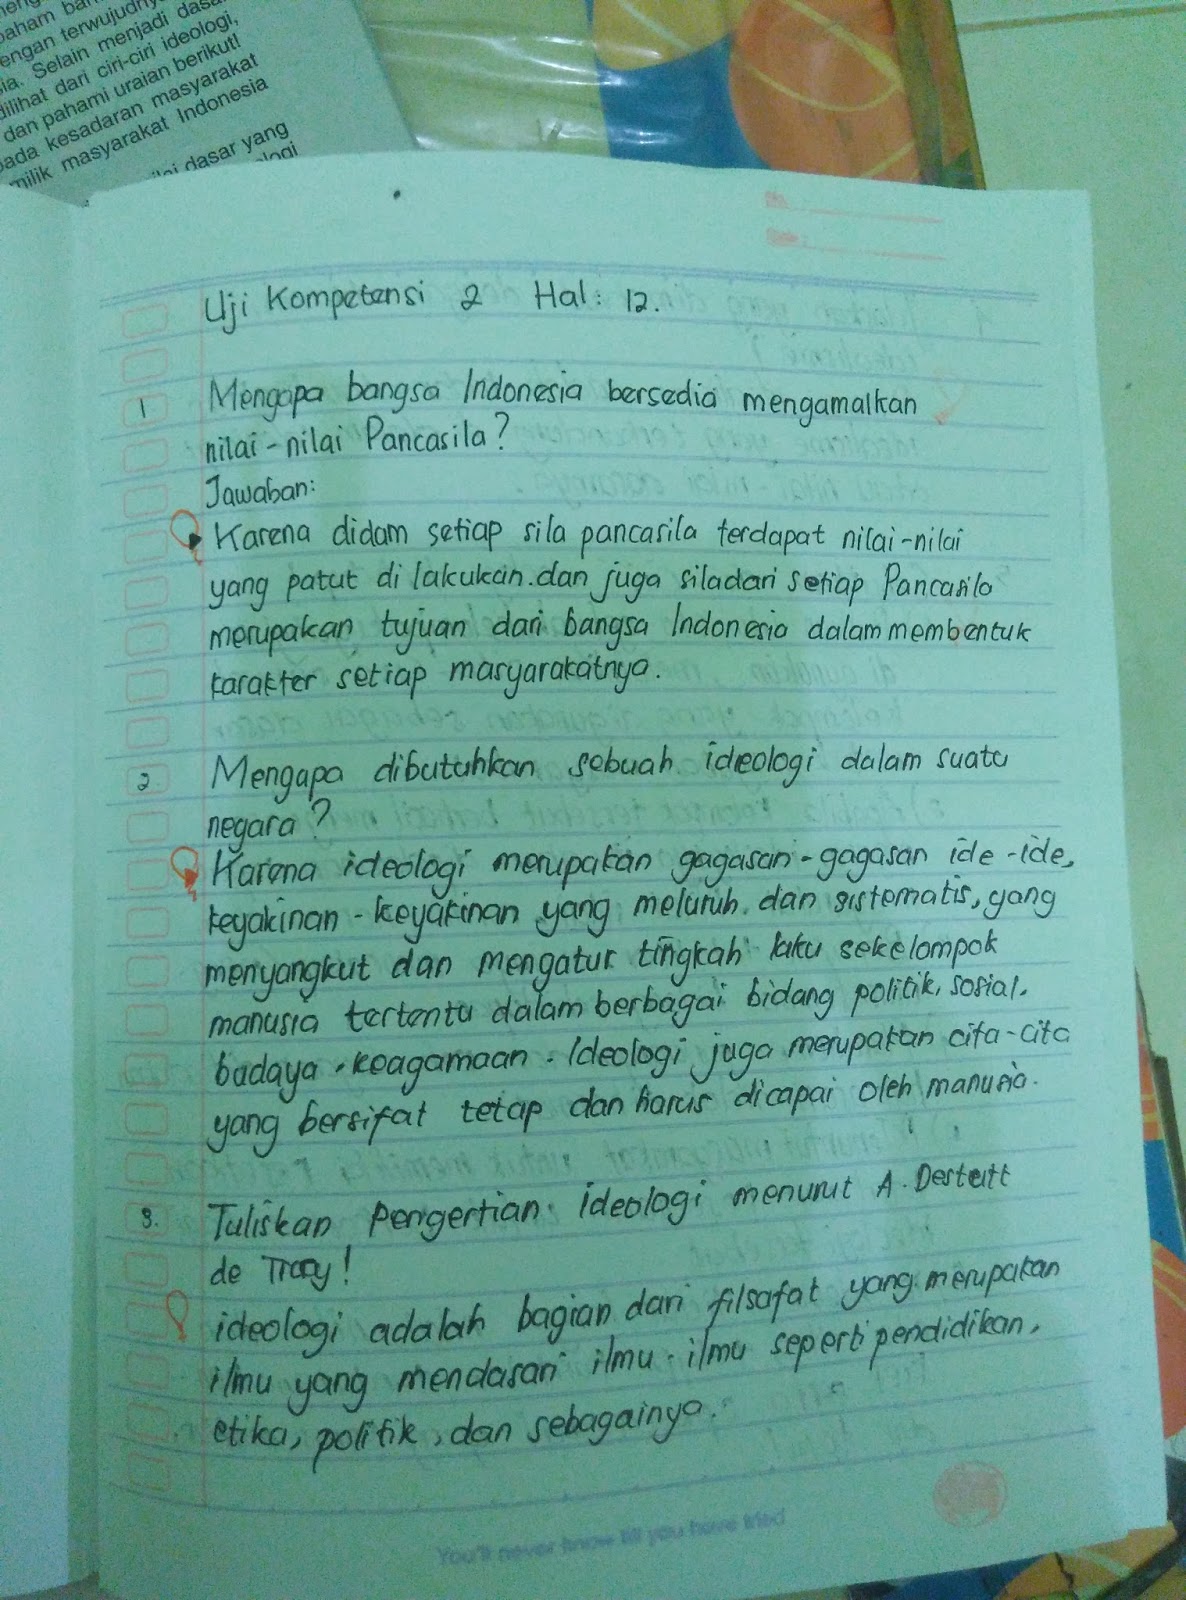 paham
engan terwujudny
ia. Selain menjadi dasar
dilihat dari ciri-ciri ideologi,
dan pahami uraian berikut!
pada kesadaran masyarakat
milik masyarakat Indonesia
dasar yang
Uji Kompetensi 2 Hal: 12.
1 Mengapa bangsa Indonesia bersedia mengamalkan
nilai-nilai Pancasila?
Jawaban:
Karena didam setiap sila pancasila terdapat nilai-nilai
yang patut di lakukan.dan juga siladari setiap Pancasila
merupakan tujuan dari bangsa Indonesia dalam membentuk
karakter setiap masyarakatnya.
2. Mengapa dibutuhkan sebuah ideologi dalam suatu
negara?
Karena ideologi merupakan gagasan-gagasan ide-ide,
keyakinan-keyakinan yang meluruh. dan sistematis, yang
menyangkut dan mengatur tingkah laku sekelompok
manusia tertentu dalam berbagai bidang politik, sosial.
budaya, keagamaan. Ideologi juga merupakan cita-cita
yang bersifat tetap dan harus dicapai oleh manusia.
3. Tuliskan Pengertian ideologi menurut A. Destutt
de Tracy!
ideologi adalah bagian dari filsafat yang merupakan
ilmu yang mendasari ilmu-ilmu seperti pendidikan,
etika, politik, dan sebagainya.
You'll never know till you have tried